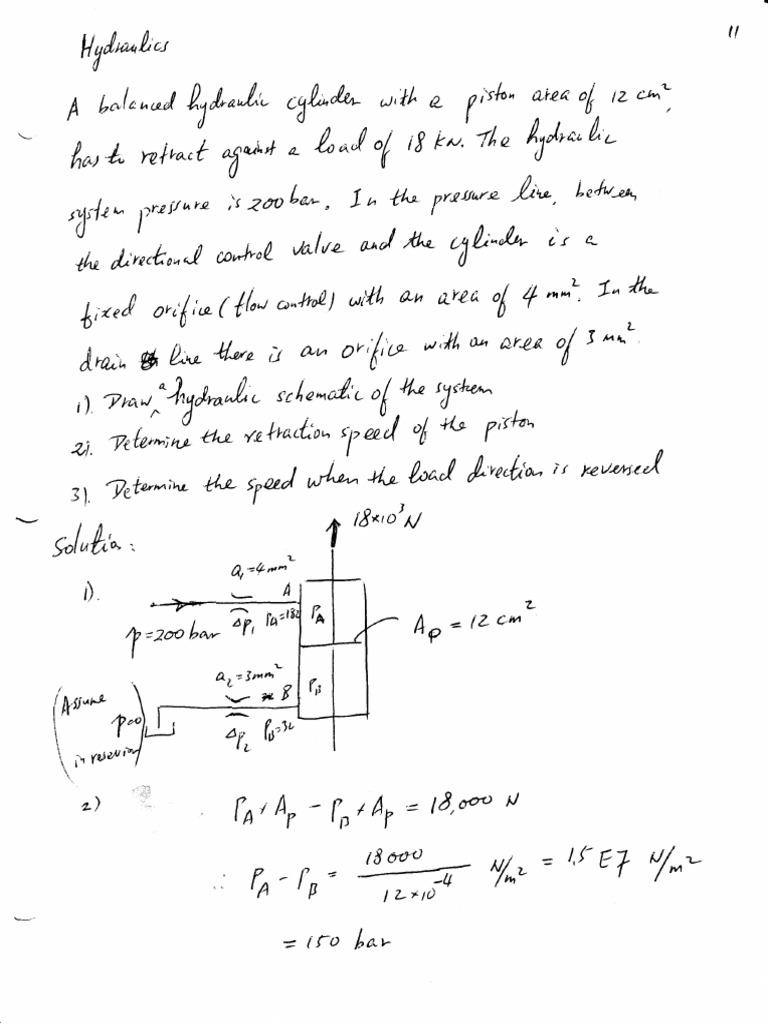 11
Hydraulics
A balanced hydraulic cylinder with a piston area of 12 cm²,
has to retract against a load of 18 kN. The hydraulic
system pressure is 200 bar. In the pressure line, between
the directional control valve and the cylinder is a
fixed orifice (flow control) with an area of 4 mm². In the
drain line there is an orifice with an area of 3 mm².
1). Draw a hydraulic schematic of the system
2). Determine the retraction speed of the piston
3). Determine the speed when the load direction is reversed
Solution:
18×10³ N
1).
a₁=4mm²
A
p=200 bar
Δp₁
P_A=182
P_A
A_p = 12 cm²
a₂=3mm²
B
P_B
(Assume
p=0
in reservior)
Δp₂
P_B=32
2)
P_A × A_p − P_B × A_p = 18,000 N
∴ P_A − P_B = 18000 / 12×10⁻⁴ N/m² = 1,5 E7 N/m²
= 150 bar